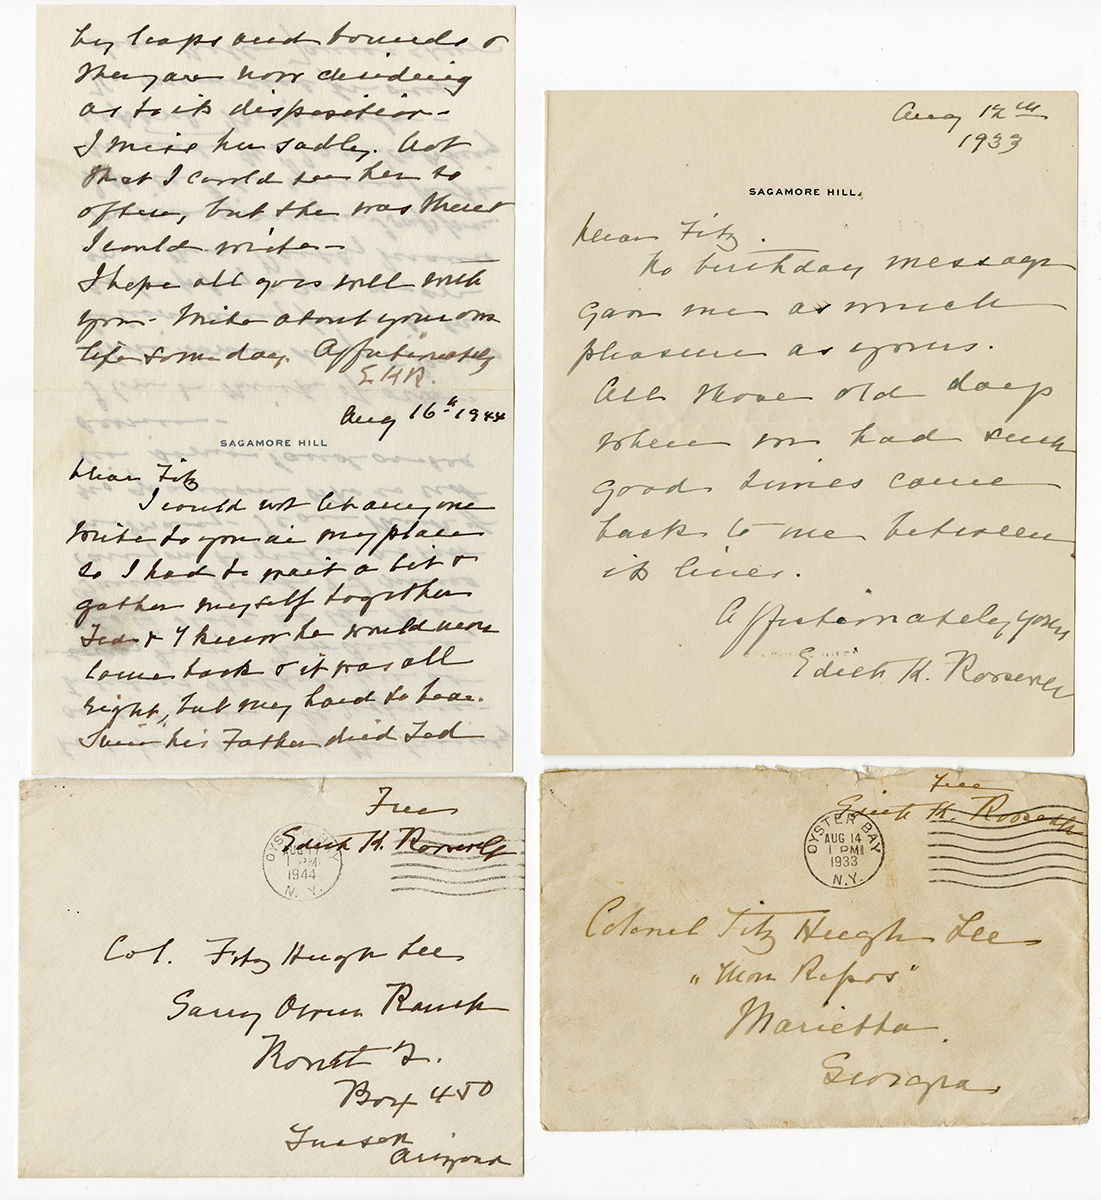 by leaps and bounds &
they are now deciding
as to its disposition -
I miss her sadly. Not
that I could see her so
often, but she was there &
I could write -
I hope all goes well with
you - Write about your own
life some day. Affectionately
E K R.
Aug 16th 1944
SAGAMORE HILL
Dear Fitz
I could not let any one
write to you in my place
so I had to wait a bit &
gather myself together
Ted & I knew he would never
come back & it was all
right, but very hard to bear.
Since his Father died Ted
Aug 12th
1933
SAGAMORE HILL.
Dear Fitz.
No birthday message
gave me as much
pleasure as yours.
All those old days
when we had such
good times came
back to me between
its lines.
Affectionately yours
Edith K. Roosevelt
Free
Edith K. Roosevelt
OYSTER BAY
AUG 17
1 PM
1944
N. Y.
Col. Fitz Hugh Lee
Garry Owen Ranch
Route 2.
Box 450
Tucson
Arizona
Free
Edith K. Roosevelt
OYSTER BAY
AUG 14
1 PM
1933
N.Y.
Colonel Fitz Hugh Lee
"Mon Repos"
Marietta
Georgia